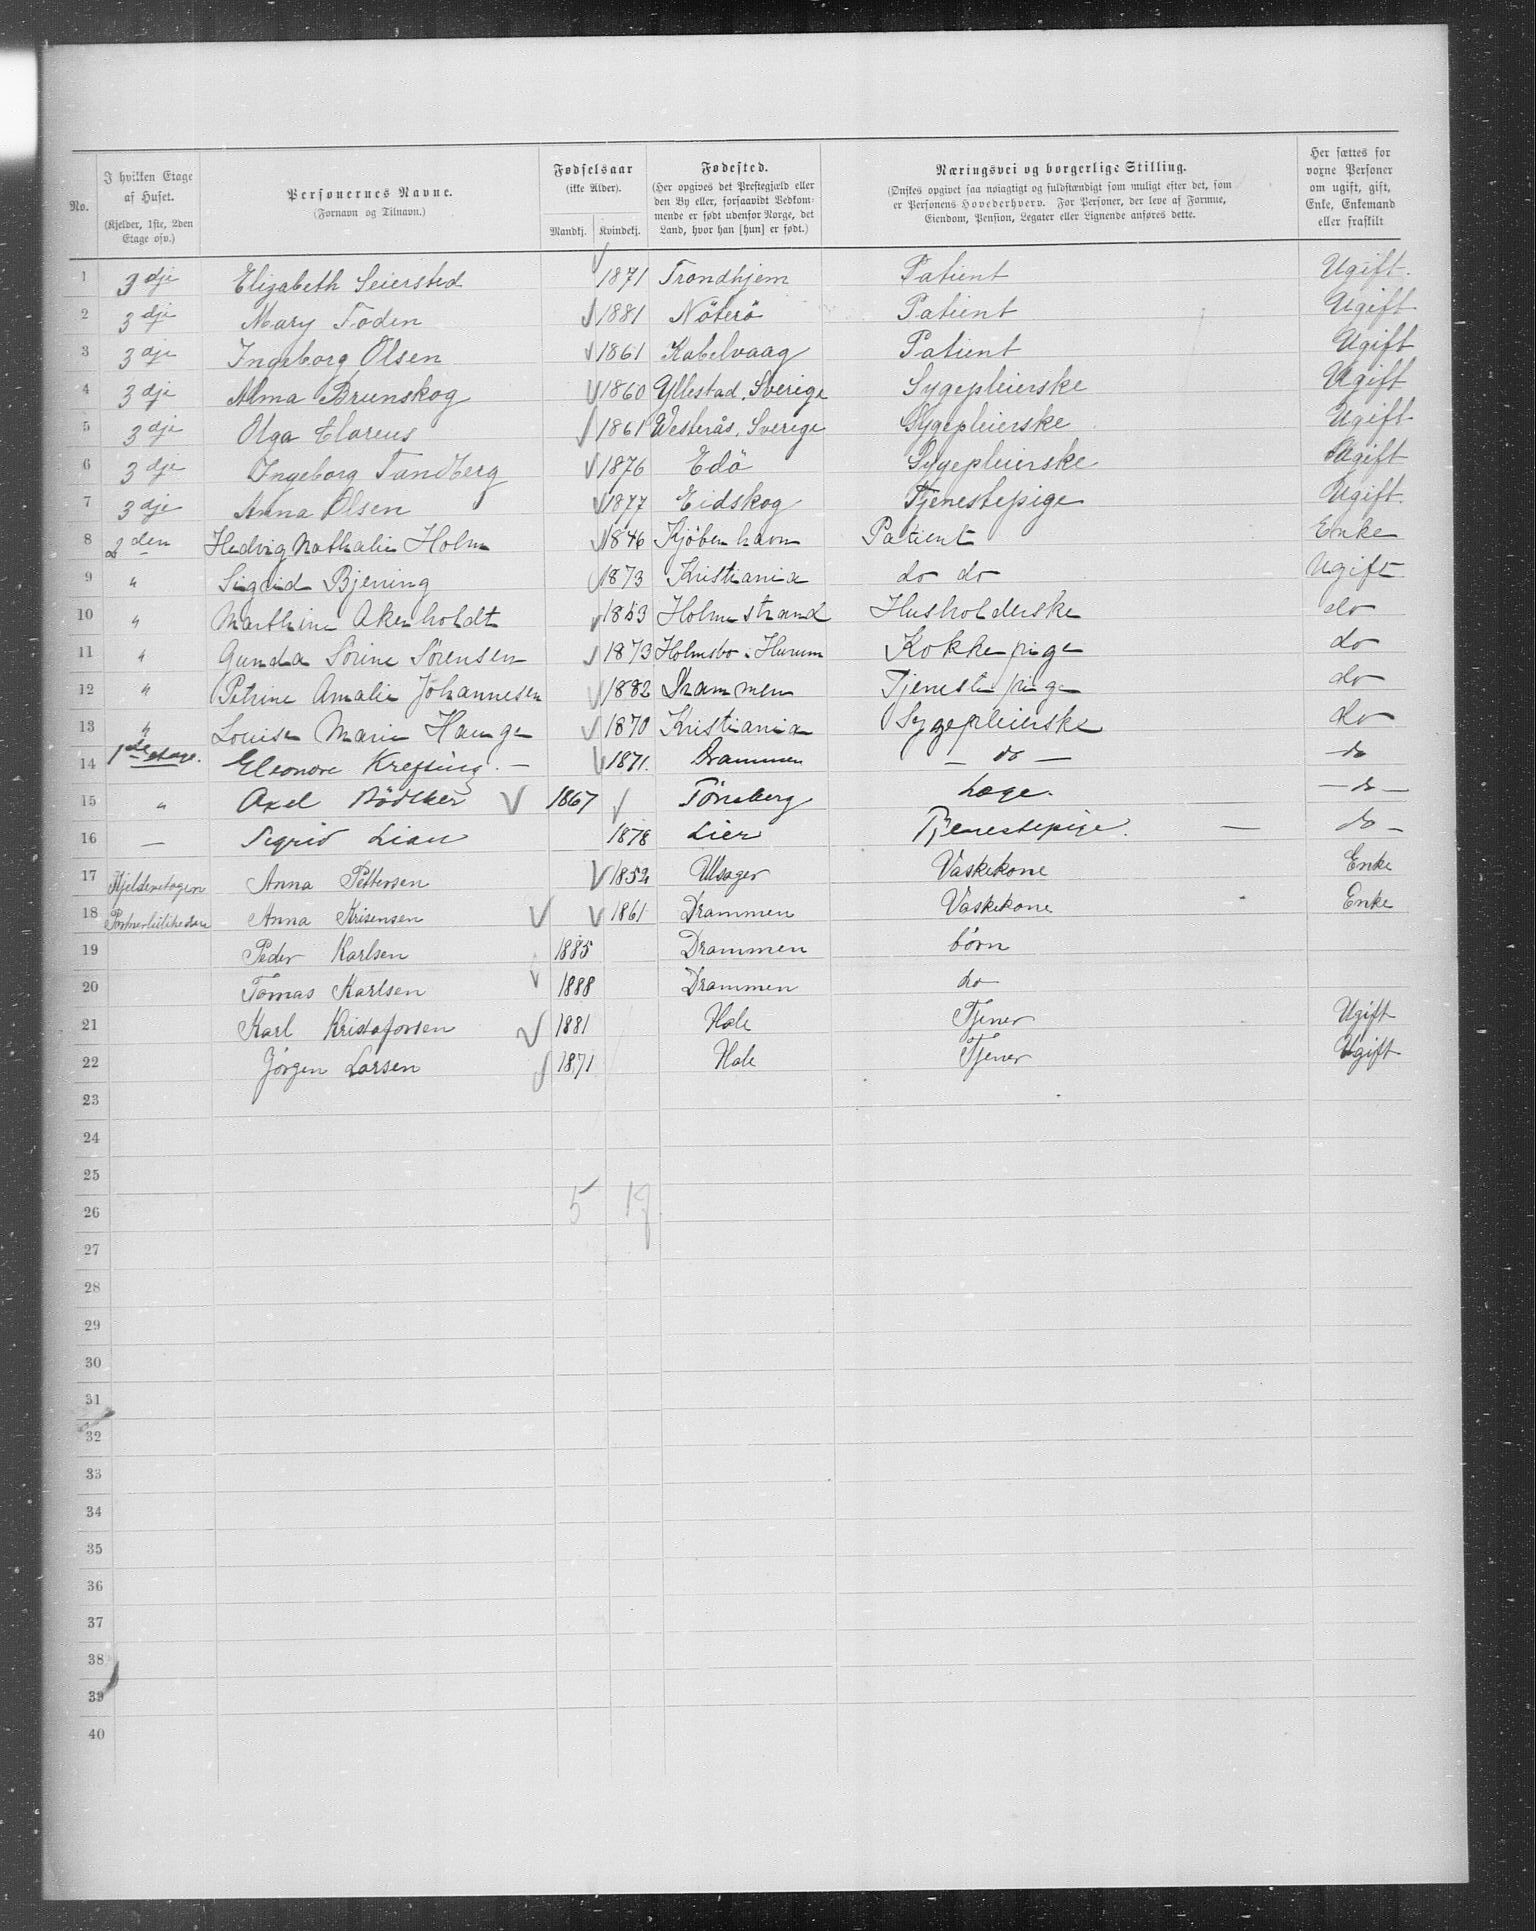 No. | I hvilken Etage af Huset. (Kjelder, 1ste, 2den Etage osv.) | Personernes Navne. (Fornavn og Tilnavn.) | Fødselsaar (ikke Alder). Mandkj. Kvindekj. | Fødested. (Her opgives det Prestegjæld eller den By eller, forsaavidt Vedkommende er født udenfor Norge, det Land, hvor han [hun] er født.) | Næringsvei og borgerlige Stilling. (Ønskes opgivet saa nøiagtigt og fuldstændigt som muligt efter det, som er Personens Hovederhverv. For Personer, der leve af Formue, Eiendom, Pension, Legater eller Lignende anføres dette. | Her sættes for vorne Personer om ugift, gift, Enke, Enkemand eller fraskilt
1 3dje Elizabeth Seiersted 1871 Trondhjem Patient Ugift.
2 3dje Mary Foden 1881 Nöterö Patient Ugift
3 3dje Ingeborg Olsen 1861 Kabelvaag Patient Ugift
4 3dje Alma Brunskog 1860 Yllestad, Sverige Sygepleierske Ugift
5 3dje Olga Clareus 1861 Westerås, Sverige Sygepleierske Ugift
6 3dje Ingeborg Tandberg 1876 Edö Sygepleierske Ugift
7 3dje Anna Olsen 1877 Eidskog Tjenestepige Ugift
8 2den Hedvig Nathalie Holm 1846 Kjøbenhavn Patient Enke
9 " Sigrid Bjening 1873 Kristiania do do Ugift
10 " Marthine Akerholdt 1853 Holmestrand Husholderske do
11 " Gunda Sørine Sørensen 1873 Holmsbo i Hurum Kokkepige do
12 " Petrine Amalie Johannesen 1882 Drammen Tjenestepige do
13 " Louise Marie Hauge 1870 Kristiania Sygepleierske do
14 1ste etage. Eleonore Krefting. — 1871. Drammen — do — — do
15 " Axel Bödtker 1867 Tönsberg Læge. — do —
16 — Sigrid Lian 1878 Lier Tjenestepige. — do —
17 Kjelderetagen Anna Pettersen 1852 Ulsager Vaskekone Enke
18 Anna Krisensen 1861 Drammen Vaskekone Enke
19 Peder Karlsen 1885 Drammen børn
20 Tomas Karlsen 1888 Drammen do
21 Karl Kristofersen 1881 Hole Tjener Ugift
22 Jørgen Larsen 1871 Hole Tjener Ugift
23
24
25
26 5 17
27
28
29
30
31
32
33
34
35
36
37
38
39
40